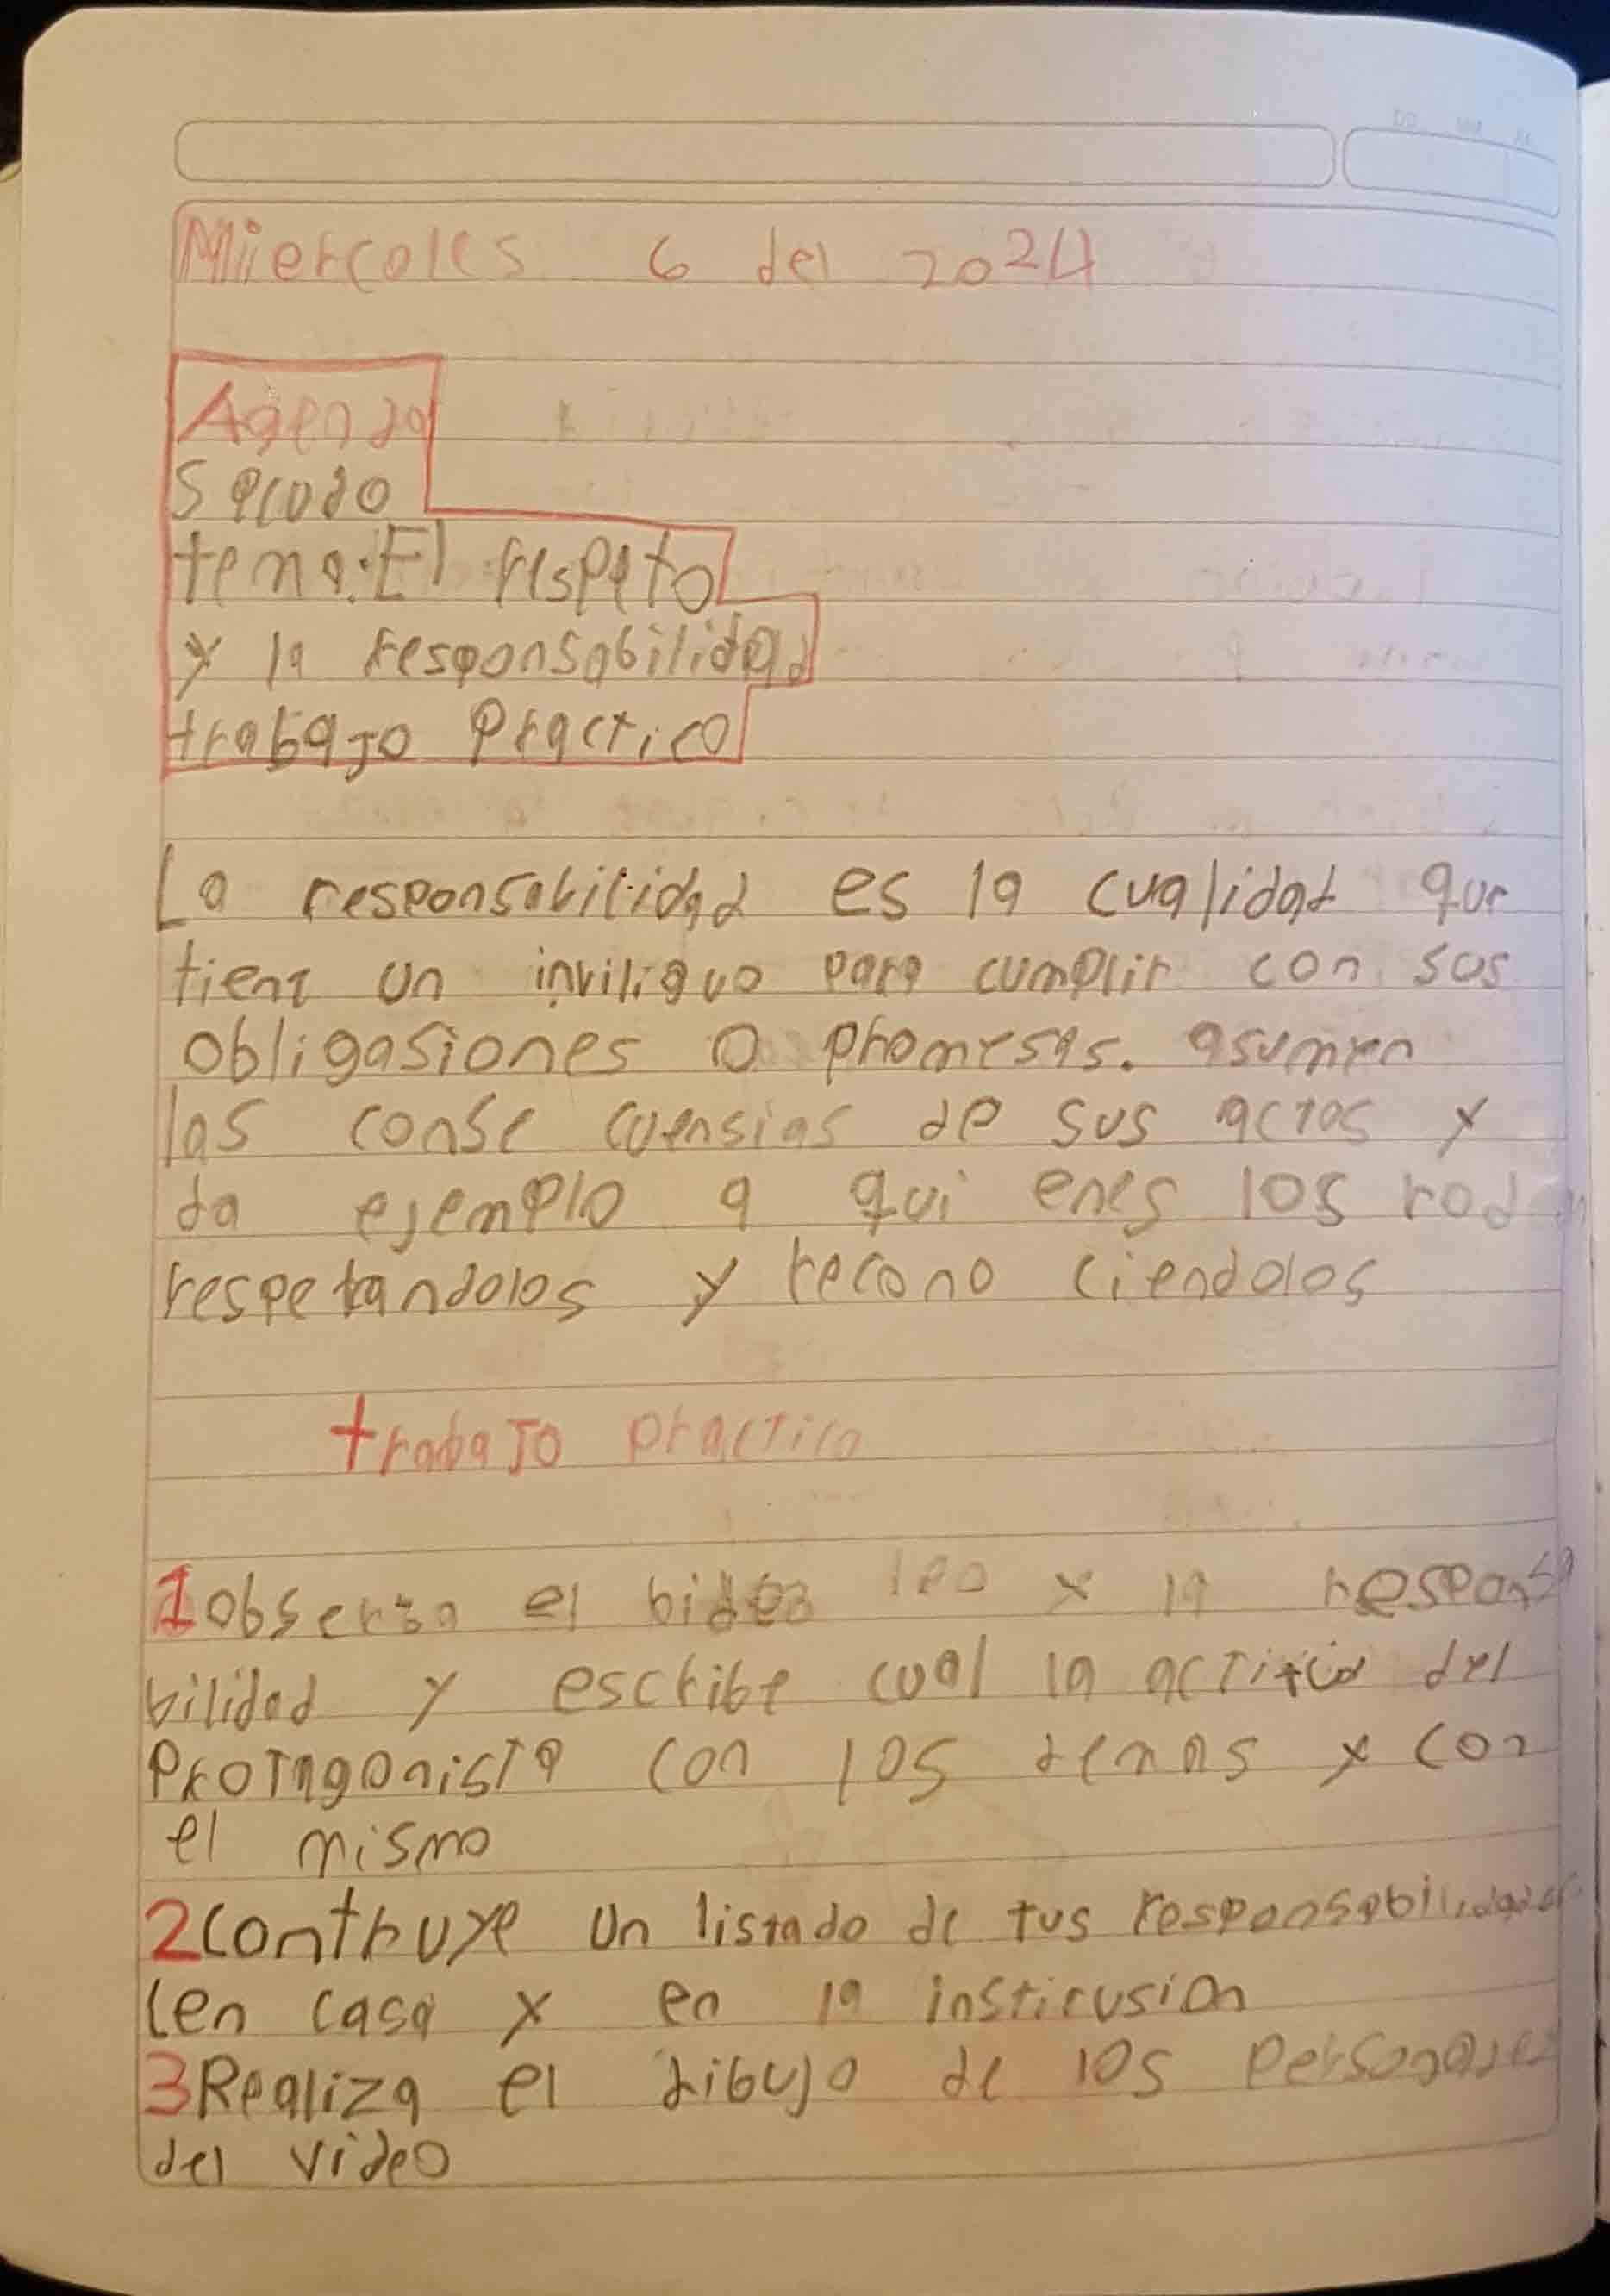 Miiercoles 6 del 2024
Agenda
Secudo
tema: El respeto
y la responsabilidad
trabajo Practico
La responsabilidad es la cualidad que
tiene un inviliguo para cumplir con sos
obligasiones o promesas. asumen
las conse cuensias de sus actos y
da ejemplo a qui enes los rod
respetandolos y recono ciendolos
trabajo practico
1 observa el bideo leo y la responsa
bilidad y escribe cual la actitud del
Protagonista con los demas y con
el mismo
2 Contruye un listado de tus responsabilidades
en casa y en la instirusion
3 Realiza el dibujo de los personajes
del video